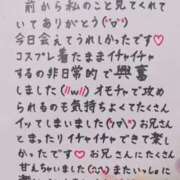 前から私のこと見てくれてい
てありがとう(˘▽˘)
今日会えてうれしかったです♡
コスプレ着たままイチャイチャ
するの非日常的で興奮
しました(//ω//)オモチャで攻
められるのも気持ちよくてたくさん
イッてしまいました(´▽`)お兄さん
とまったりイチャイチャできて楽し
かったです♡お兄さんにたくさん
甘えちゃいました(⌒▽⌒)またいっしょに